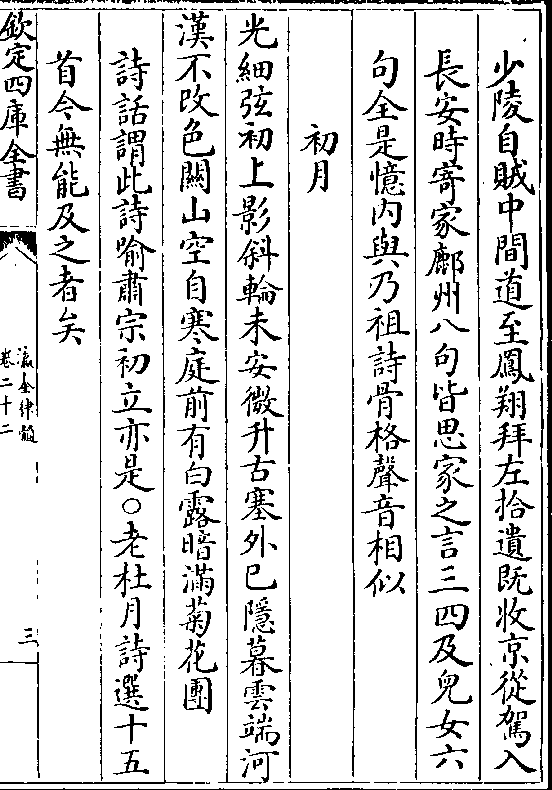 少陵自賊中間道至鳳翔拜左拾遺既收京從駕入
長安時寄家鄜州八句皆思家之言三四及兒女六
句全是憶内與乃祖詩骨格聲音相似
初月
光細弦初上影斜輪未安微升古塞外已隱暮雲端河
漢不改色關山空自寒庭前有白露暗滿菊花團
詩話謂此詩喻肅宗初立亦是○老杜月詩選十五
首今無能及之者矣
欽定四庫全書
瀛奎律髓
卷二十二
三